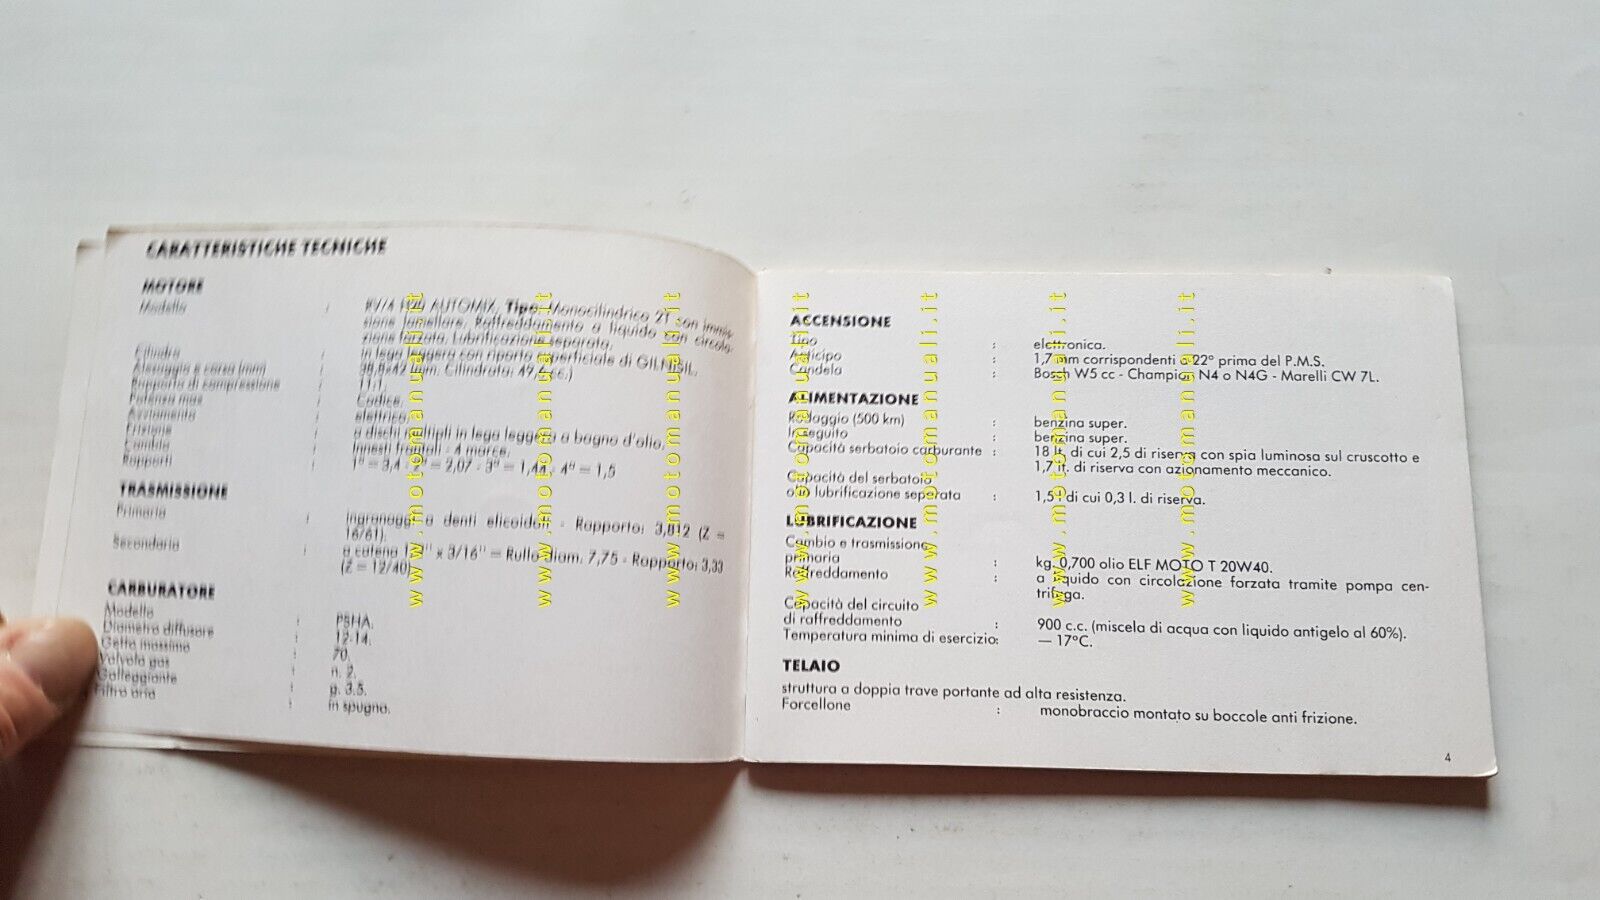 CARATTERISTICHE TECNICHE
MOTORE
Modello : AUTOMIX. Tipo: Monocilindrico 2T con immis-
sione lamellare. Raffreddamento a liquido con circola-
zione forzata. Lubrificazione separata.
Cilindro in lega leggera con riporto superficiale di GILNISIL.
Alesaggio e corsa (mm) : 38,8x42 mm. Cilindrata: 49,6 cc.)
Rapporto di compressione : 11:1.
Potenza max : Codice.
Avviamento : elettrico.
Frizione : a dischi multipli in lega leggera a bagno d'olio.
Cambio : Innesti frontali - 4 marce.
Rapporti : 1ª = 3,4 - 2ª = 2,07 - 3ª = 1,44 - 4ª = 1,5
TRASMISSIONE
Primaria : Ingranaggi a denti elicoidali - Rapporto: 3,812 (Z =
16/61).
Secondaria : a catena x 3/16" = Rullo diam. 7,75 - Rapporto: 3,33
(Z = 12/40)
CARBURATORE
Modello : PSHA.
Diametro diffusore : 12-14.
Getto massimo : 70.
Valvola gas : n. 2.
Galleggiante : g. 3.5.
Filtro aria : in spugna.
ACCENSIONE
Tipo : elettronica.
Anticipo : 1,7 mm corrispondenti a 22° prima del P.M.S.
Candela : Bosch W5 cc - Champion N4 o N4G - Marelli CW 7L.
ALIMENTAZIONE
Rodaggio (500 km) : benzina super.
In seguito : benzina super.
Capacità serbatoio carburante : 18 lt. di cui 2,5 di riserva con spia luminosa sul cruscotto e
1,7 lt. di riserva con azionamento meccanico.
Capacità del serbatoio
olio lubrificazione separata : 1,5 l di cui 0,3 l. di riserva.
LUBRIFICAZIONE
Cambio e trasmissione
primaria : kg. 0,700 olio ELF MOTO T 20W40.
Raffreddamento : a liquido con circolazione forzata tramite pompa cen-
trifuga.
Capacità del circuito
di raffreddamento : 900 c.c. (miscela di acqua con liquido antigelo al 60%).
Temperatura minima di esercizio: — 17°C.
TELAIO
struttura a doppia trave portante ad alta resistenza.
Forcellone : monobraccio montato su boccole anti frizione.
4
www.motomanuali.it
www.motomanuali.it
www.motomanuali.it
www.motomanuali.it
www.motomanuali.it
www.motomanuali.it
www.motomanuali.it